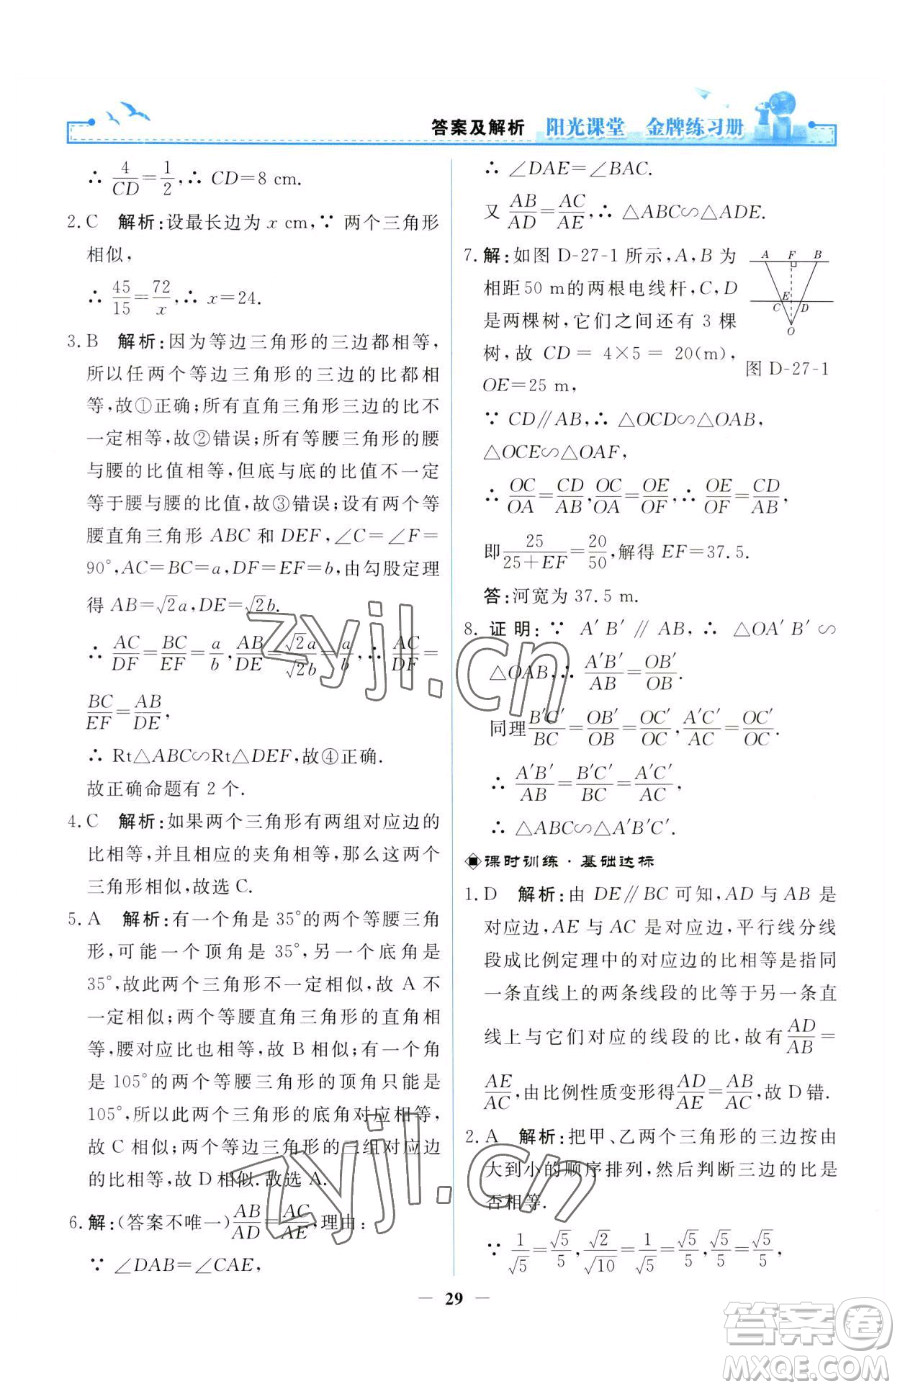 答案及解析 阳光课堂 金牌练习册
∴ 4/CD=1/2,∴ CD=8 cm.
2. C 解析:设最长边为 x cm,∵ 两个三角形
相似,
∴ 45/15=72/x,∴ x=24.
3. B 解析:因为等边三角形的三边都相等,
所以任两个等边三角形的三边的比都相
等,故①正确;所有直角三角形三边的比不
一定相等,故②错误;所有等腰三角形的腰
与腰的比值相等,但底与底的比不一定
等于腰与腰的比值,故③错误;设有两个等
腰直角三角形 ABC 和 DEF,∠C=∠F=
90°,AC=BC=a,DF=EF=b,由勾股定理
得 AB=√2a,DE=√2b.
∴ AC/DF=BC/EF=a/b,AB/DE=√2a/√2b=a/b,∴ AC/DF=
BC/EF=AB/DE,
∴ Rt△ABC∽Rt△DEF,故④正确.
故正确命题有 2 个.
4. C 解析:如果两个三角形有两组对应边的
比相等,并且相等的夹角相等,那么这两个
三角形相似,故选 C.
5. A 解析:有一个角是 35°的两个等腰三角
形,可能一个顶角是 35°,另一个底角是
35°,故此两个三角形不一定相似,故 A 不
一定相似;两个等腰直角三角形的直角相
等,腰对应比也相等,故 B 相似;有一个角
是 105°的两个等腰三角形的顶角只能是
105°,所以此两个三角形的底角对应相等,
故 C 相似;两个等边三角形的三组对应边的
比相等,故 D 相似.故选 A.
6. 解:(答案不唯一)AB/AD=AC/AE,理由:
∵ ∠DAB=∠CAE,
∴ ∠DAE=∠BAC.
又 AB/AD=AC/AE,∴ △ABC∽△ADE.
7. 解:如图 D-27-1 所示,A,B 为
相距50 m的两根电线杆,C,D
是两棵树,它们之间还有 3 棵
树,故 CD = 4×5 = 20(m),
OE=25 m,
A F B
C E D
O
图 D-27-1
∵ CD∥AB,∴ △OCD∽△OAB,
△OCE∽△OAF,
∴ OC/OA=CD/AB,OC/OA=OE/OF,∴ OE/OF=CD/AB,
即25/25+EF=20/50,解得 EF=37.5.
答:河宽为 37.5 m.
8. 证明:∵ A′B′∥AB,∴ △OA′B′∽
△OAB,∴ A′B′/AB=OB′/OB.
同理B′C′/BC=OB′/OB=OC′/OC,A′C′/AC=OC′/OC,
∴ A′B′/AB=B′C′/BC=A′C′/AC,
∴ △ABC∽△A′B′C′.
课时训练·基础达标
1. D 解析:由 DE∥BC 可知,AD 与 AB 是
对应边,AE 与 AC 是对应边,平行线分线
段成比例定理中的对应边的比相等是指同
一条直线上的两条线段的比等于另一条直
线上与它们对应的线段的比,故有AD/AB=
AE/AC,由比例性质变形得AD/AE=AB/AC,故 D 错.
2. A 解析:把甲、乙两个三角形的三边按由
大到小的顺序排列,然后判断三边的比是
否相等.
∵ 1/√5=√5/5,√2/√10=√5/5,√5/5=√5/5,
— 29 —
zyjl.cn
zyjl.cn
答案圈
MXQE.COM